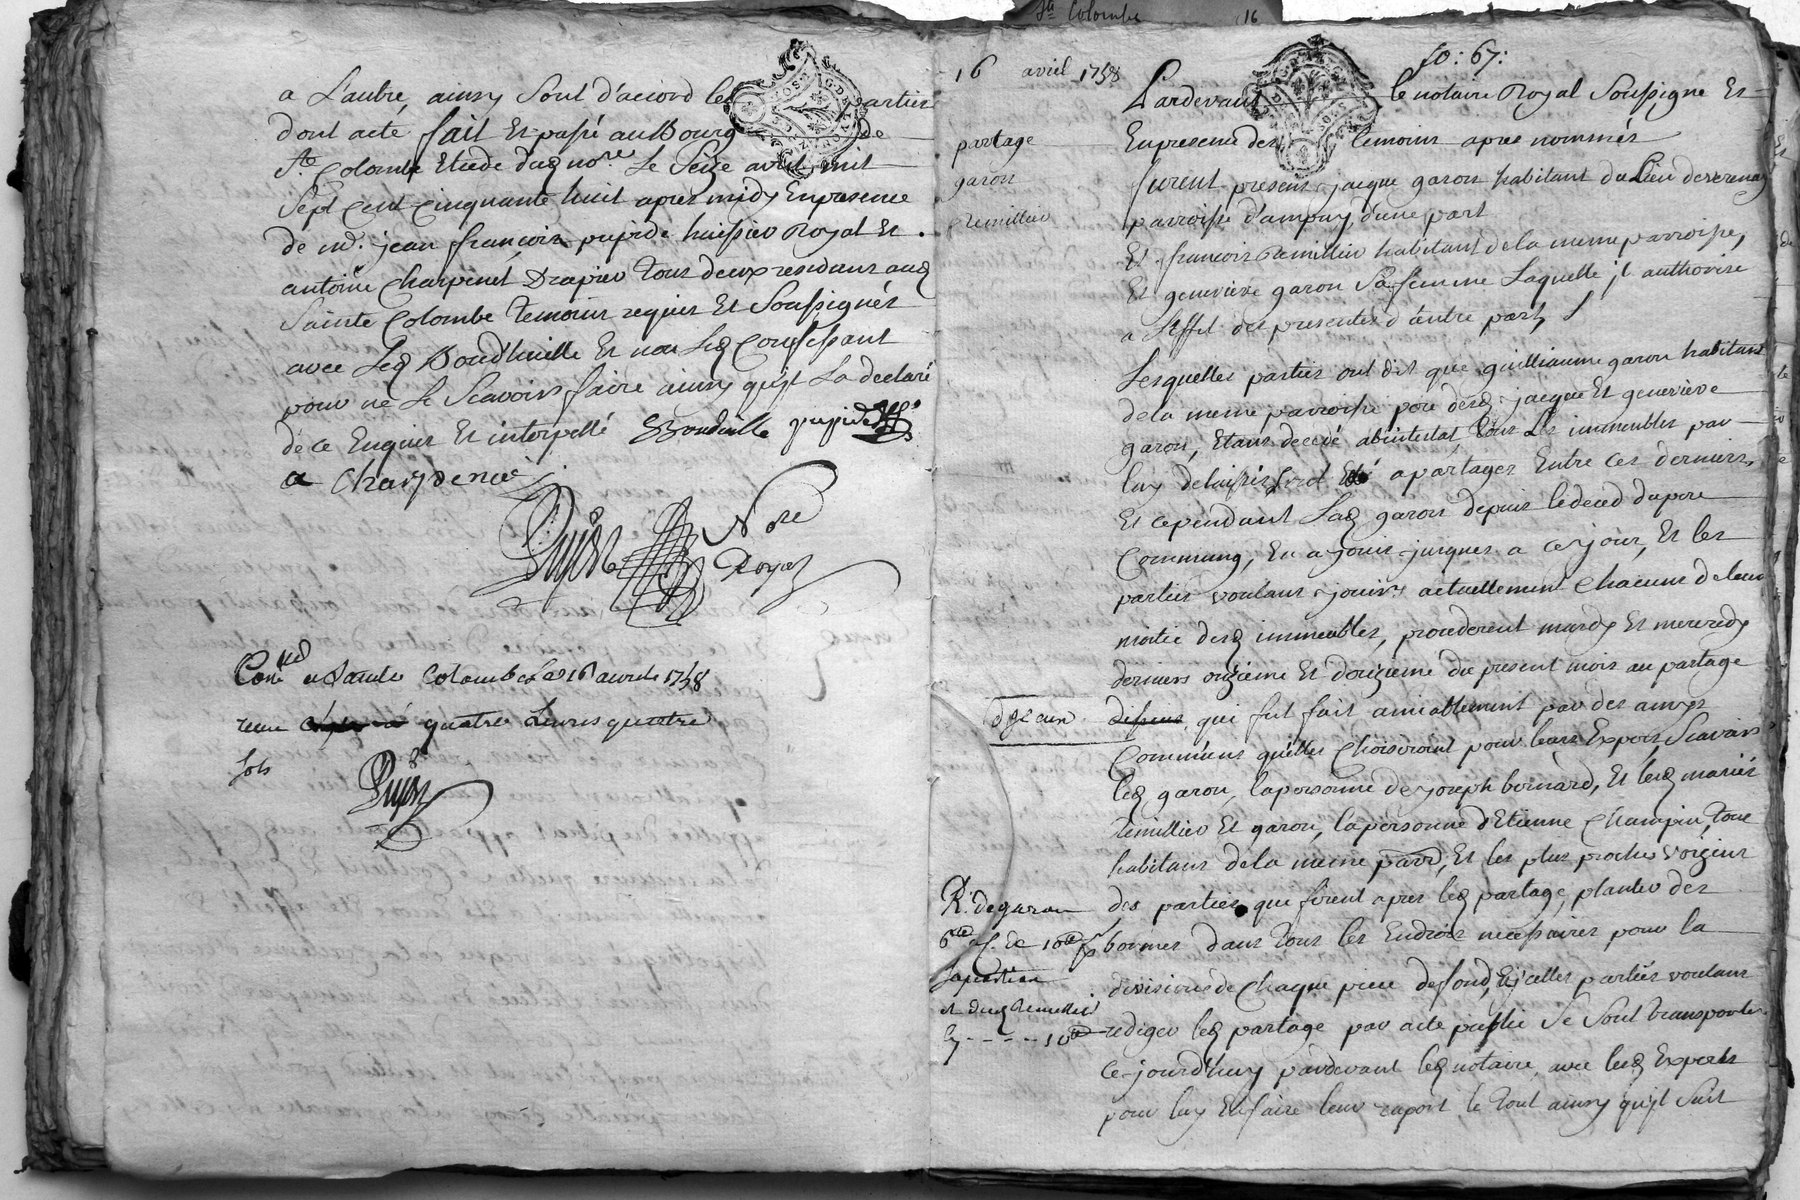 Ste Colombe 16
a L'autre, ainsy Sont d'accord les parties
dont acte fait Et passé au Bourg de
Ste Colombe Etude dud nore Le Seize avril mil
Sept Cent Cinquante huit apres midy En presence
de me. jean françois pupide huissier Royal Et
antoine Charpenet Drapier Tous deux residans aud
Sainte Colombe Temoins requis Et Soussignés
avec Led Boudhuille Et non Led Confessant
pour ne Le Scavoir faire ainsy qu'jl La declaré
de ce Enquis Et interpellé
a Charpenet
Nore
Royal
Conlle a Sainte Colombe Le 16 avril 1758
receu quatre Livres quatre
sols
fo: 67:
16 avril 1758
partage
garon
Remillier
Pardevant le notaire Royal Soussigné Et
En presence des temoins apres nommés
furent presens jacque garon habitant du Lieu de verenay
parroisse d'ampuy d'une part
Et françois Remillier habitant de la meme parroisse,
Et genevieve garon Sa femme Laquelle jl authorise
a L'effet des presentes d'autre part,
Lesquelles parties ont dit que guilliaume garon habitant
de la meme parroisse pere desd. jacque Et genevieve
garon, Etant decedé abintestat, tous Les immeubles par
luy delaissés sont a partager Entre ces derniers,
Et cependant Led garon depuis le deced du pere
Commung, En a jouis jusques a ce jour, Et les
parties voulans jouir actuellement Chacune de leur
moitié desd immeubles, procederent mardy Et mercredy
derniers onzieme Et douzieme du present mois au partage
diceux qui fut fait amiablement par des amys
Communs qu'elles Choisirent pour leurs Experts, Scavoir
led garon, la personne de joseph bernard, Et lesd mariés
Remillier Et garon, la personne d'Etienne Champin, Tous
habitans de la meme parr, Et les plus proches voisins
des parties que firent apres led partage, planter des
bornes dans Tous les Endroits necessaires pour la
division de Chaque piece de fond, Ejcelles parties voulans
rediger led partage par acte public Se Sont transportées
Ce jourd'huy pardevant led notaire, avec lesd Experts
pour luy En faire leur raport, le Tout ainsy qu'jl Suit
R. de garon